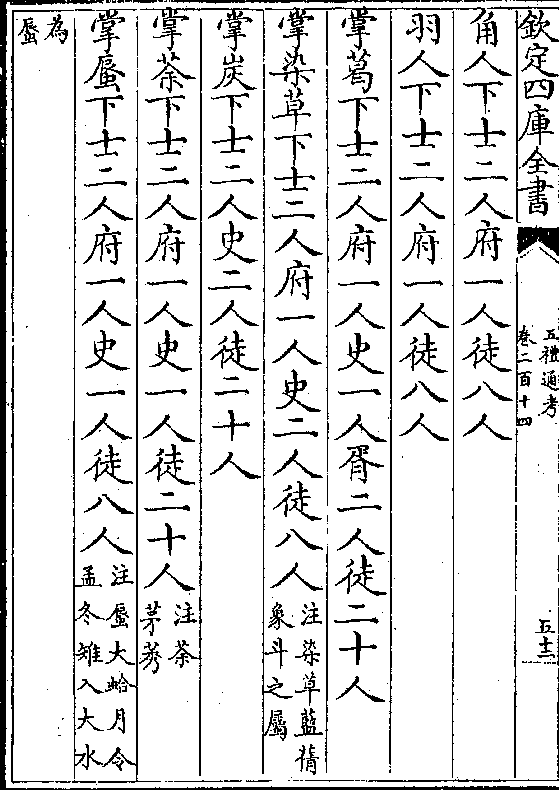 欽定四庫全書
五禮通考
卷二百十四
五十三
角人下士二人府一人徒八人
羽人下士二人府一人徒八人
掌葛下士二人府一人史一人胥二人徒二十人
掌染草下士二人府一人史二人徒八人注染草藍蒨
象斗之屬
掌炭下士二人史二人徒二十人
掌荼下士二人府一人史一人徒二十人注荼
茅莠
掌蜃下士二人府一人史一人徒八人注蜃大蛤月令
孟冬雉入大水
為
蜃